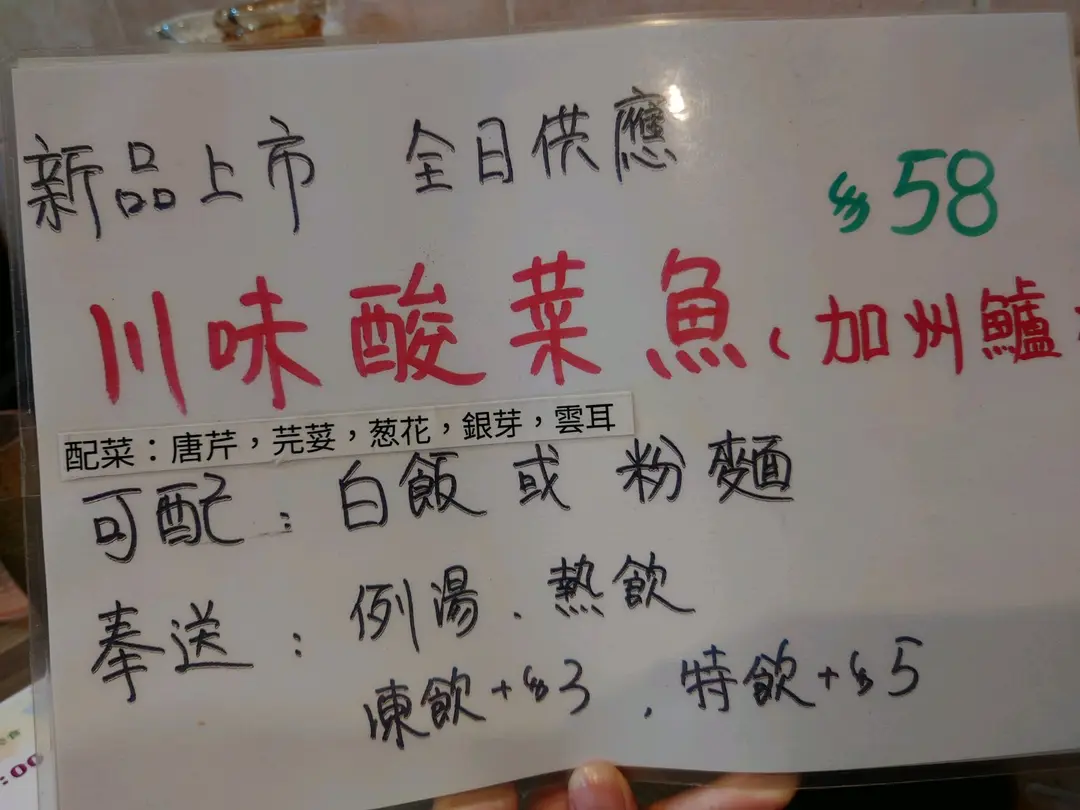 新品上市 全日供應
$58
川味酸菜魚(加州鱸
配菜：唐芹，芫荽，葱花，銀芽，雲耳
可配：白飯或粉麵
奉送：例湯．熱飲
凍飲+$3．特飲+$5
:00